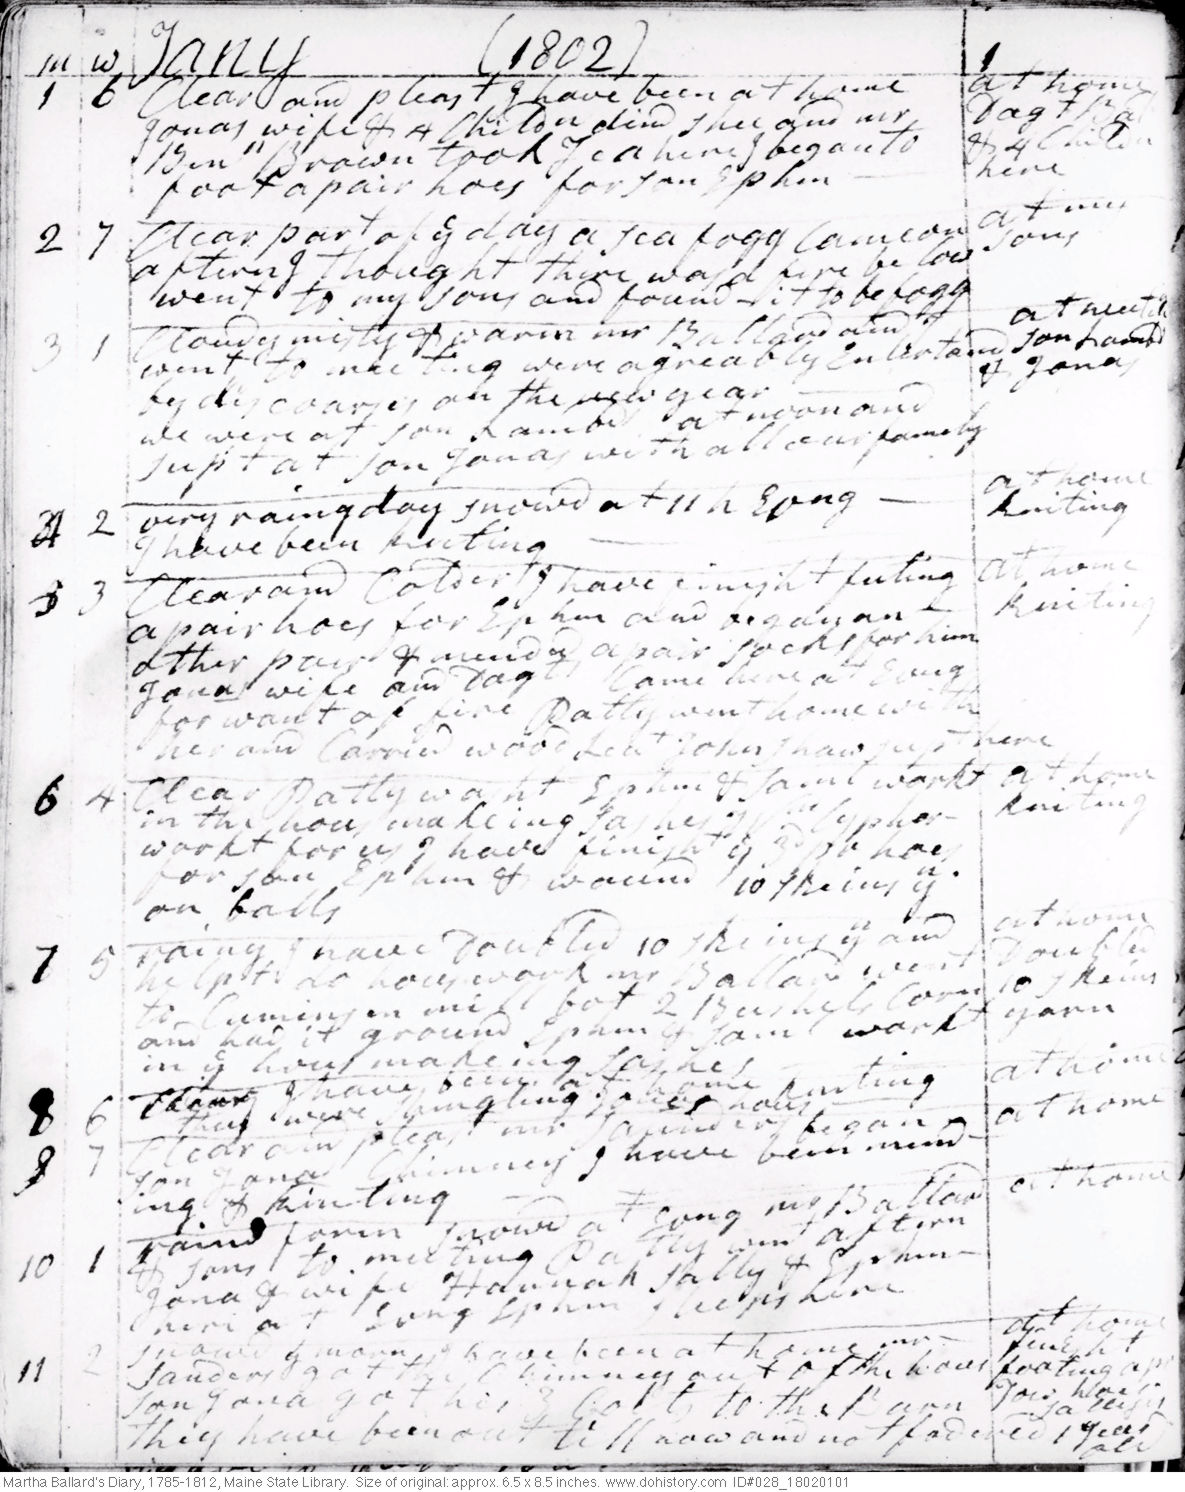 m w Jany (1802) 1
1 6 Clear and pleast I have been at home at home
Jonas wife & 4 Childn dind shee and mr Dagt Bal
Ben" Brown took Tea here I began to & 4 Childn
foot a pair hoes for son Ephm here
2 7 Clear part of ye day a sea fogg Came on at my
aftern I thought there was a fire be low sons
went to my sons and found it to be fogg
3 1 Cloudy misty & warm mr Ballard and I at meeting
went to meeting were agreably Entertaind son Lambd
by discoarses on the new year & Jonas
we were at son Lambd at noon and
supt at son Jonas with all our family
4 2 very rainy day snowd at 11 h Evng at home
I have been kniting kniting
5 3 Clear and Colder I have finisht futing at home
a pair hoes for Ephm and began an kniting
other pair & mended a pair socks for him
Jonas wife and Dagt Came here at Evng
for want of fire Patty went home with
her and Carried wood John Shaw supt here
6 4 Clear Patty washt Ephm & Saml workt at home
in the hous makeing sashes kniting
workt for us I have finisht ye 3d pr hoes
for son Ephm & wound 10 skeins y.
on balls
7 5 rainy I have Doubled 10 skeins y and at home
helpt do houswork mr Ballard went Doubld
to Cumings mill bot 2 Bushels Corn 10 skeins
and had it ground Ephm & Saml workt yarn
in ye hous makeing sashes
8 6 Clear I have been at home kniting at home
they were shingling Jonas hous
9 7 Clear and pleast mr Sanders began at home
son Jona Chimney I have been mend
ing & kniting
10 1 raind forin snowd at Evng mr Ballard at home
& sons to meeting Patty went aftern
Jona & wife Hannah Sally & Ephm
here at Evng Ephm sleeps here
11 2 snowd ye morn I have been at home mr at home
Sanders got the Chimney out of the hous finisht
son Jona got his 3 Colts to the Barn footing a pr
they have been out till now and not foderd hoes
1 year
old
Martha Ballard's Diary, 1785-1812, Maine State Library. Size of original: approx. 6.5 x 8.5 inches. www.dohistory.com ID#028_18020101